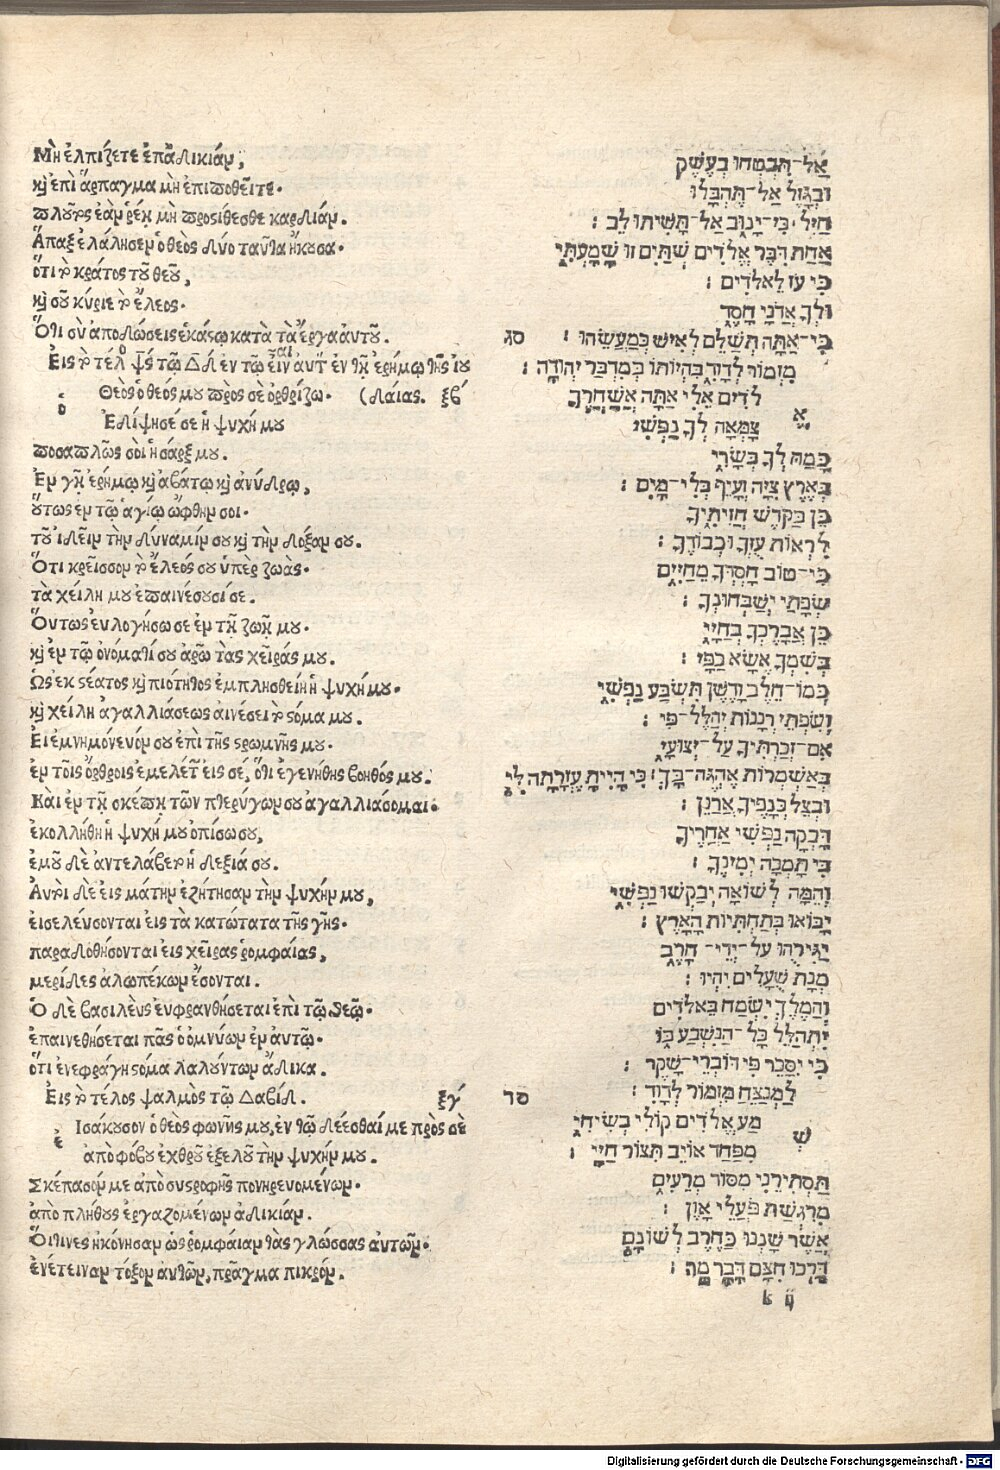 Μὴ ἐλπίζετε ἐπ᾽ ἀδικίαν,
κỳ ἐπὶ ἅρπαγμα μὴ ἐπιποθεῖτε.
πλοῦτος ἐὰν ῥέῃ μὴ προσίθεσθε καρδίαν.
Ἅπαξ ἐλάλησεν ὁ θεὸς δύο ταῦτα ἤκουσα.
ὅτι τὸ κράτος τοῦ θεοῦ,
κỳ σοῦ κύριε τὸ ἔλεος.
Ὅτι σὺ ἀποδώσεις ἑκάστῳ κατὰ τὰ ἔργα αὐτοῦ.
Θεὸς ὁ θεός μου πρὸς σὲ ὀρθρίζω. ξβ
Ἐδίψησέ σε ἡ ψυχή μου
ποσαπλῶς σοὶ ἡ σάρξ μου.
Ἐν γῇ ἐρήμῳ κỳ ἀβάτῳ κỳ ἀνύδρῳ,
οὕτως ἐν τῷ ἁγίῳ ὤφθην σοι.
τοῦ ἰδεῖν τὴν δύναμίν σου κỳ τὴν δόξαν σου.
Ὅτι κρεῖσσον τὸ ἔλεός σου ὑπὲρ ζωάς.
τὰ χείλη μου ἐπαινέσουσί σε.
Ὅυτως ἐυλογήσω σε ἐν τῇ ζωῇ μου.
κỳ ἐν τῷ ὀνόματί σου ἀρῶ τὰς χεῖράς μου.
Ὡς ἐκ στέατος κỳ πιότητος ἐμπλησθείη ἡ ψυχή μου.
κỳ χείλη ἀγαλλιάσεως αἰνέσει τὸ στόμα μου.
Ἐι ἐμνημόνευόν σου ἐπὶ τῆς στρωμνῆς μου.
ἐν τοῖς ὄρθροις ἐμελέτων εἰς σέ, ὅτι ἐγενήθης βοηθός μου.
Καὶ ἐν τῇ σκέπῃ τῶν πτερύγων σου ἀγαλλιάσομαι.
ἐκολλήθη ἡ ψυχή μου ὀπίσω σου,
ἐμοῦ δὲ ἀντελάβετο ἡ δεξιά σου.
Ἀυτοὶ δὲ εἰς μάτην ἐζήτησαν τὴν ψυχήν μου,
εἰσελεύσονται εἰς τὰ κατώτατα τῆς γῆς.
παραδοθήσονται εἰς χεῖρας ῥομφαίας,
μερίδες ἀλωπέκων ἔσονται.
Ὁ δὲ βασιλεὺς ἐυφρανθήσεται ἐπὶ τῷ θεῷ.
ἐπαινεθήσεται πᾶς ὁ ὀμνύων ἐν ἀυτῷ.
ὅτι ἐνεφράγη στόμα λαλούντων ἄδικα.
Ἐις τὸ τέλος ψαλμὸς τῷ Δαβίδ. ξγ
Ἐισάκουσον ὁ θεὸς φωνῆς μου, ἐν τῷ δέεσθαί με πρὸς σὲ
ἀπὸ φόβου ἐχθροῦ ἐξελοῦ τὴν ψυχήν μου.
Σκέπασόν με ἀπὸ συστροφῆς πονηρευομένων.
ἀπὸ πλήθους ἐργαζομένων ἀδικίαν.
Ὅιτινες ἠκόνησαν ὡς ῥομφαίαν τὰς γλώσσας ἀυτῶν.
ἐνέτειναν τόξον ἀυτῶν, πρᾶγμα πικρόν.
אַל־תִּבְטְחוּ בְעֹשֶׁק
וּבְגָזֵל אַל־תֶּהְבָּלוּ
חַיִל כִּי־יָנוּב אַל־תָּשִׁיתוּ לֵב :
אַחַת דִּבֶּר אֱלֹדִים שְׁתַּיִם זוּ שָׁמָעְתִּי
כִּי עֹז לֵאלֹדִים :
וּלְךָ אֲדֹנָי חָסֶד
כִּי־אַתָּה תְשַׁלֵּם לְאִישׁ כְּמַעֲשֵׂהוּ : סג
מִזְמוֹר לְדָוִד בִּהְיוֹתוֹ בְּמִדְבַּר יְהוּדָה :
א לֹדִים אֵלִי אַתָּה אֲשַׁחֲרֶךָּ
צָמְאָה לְךָ נַפְשִׁי
כָּמַהּ לְךָ בְשָׂרִי
בְּאֶרֶץ צִיָּה וְעָיֵף בְּלִי־מָיִם :
כֵּן בַּקֹּדֶשׁ חֲזִיתִיךָ
לִרְאוֹת עֻזְּךָ וּכְבוֹדֶךָ :
כִּי־טוֹב חַסְדְּךָ מֵחַיִּים
שְׂפָתַי יְשַׁבְּחוּנְךָ :
כֵּן אֲבָרֶכְךָ בְחַיָּי
בְּשִׁמְךָ אֶשָּׂא כַפָּי :
כְּמוֹ־חֵלֶב וָדֶשֶׁן תִּשְׂבַּע נַפְשִׁי
וְשִׂפְתֵי רְנָנוֹת יְהַלֶּל־פִּי :
אִם־זְכַרְתִּיךָ עַל־יְצוּעָי
בְּאַשְׁמֻרוֹת אֶהְגֶּה־בָּךְ : כִּי הָיִיתָ עֶזְרָתָה לִּי
וּבְצֵל כְּנָפֶיךָ אֲרַנֵּן :
דָּבְקָה נַפְשִׁי אַחֲרֶיךָ
בִּי תָּמְכָה יְמִינֶךָ :
וְהֵמָּה לְשׁוֹאָה יְבַקְשׁוּ נַפְשִׁי
יָבוֹאוּ בְּתַחְתִּיּוֹת הָאָרֶץ :
יַגִּירֻהוּ עַל־יְדֵי־חָרֶב
מְנָת שֻׁעָלִים יִהְיוּ :
וְהַמֶּלֶךְ יִשְׂמַח בֵּאלֹדִים
יִתְהַלֵּל כָּל־הַנִּשְׁבָּע בּוֹ
כִּי יִסָּכֵר פִּי דּוֹבְרֵי־שָׁקֶר :
סד לַמְנַצֵּחַ מִזְמוֹר לְדָוִד :
שׁ מַע אֱלֹדִים קוֹלִי בְשִׂיחִי
מִפַּחַד אוֹיֵב תִּצּוֹר חַיָּי :
תַּסְתִּירֵנִי מִסּוֹד מְרֵעִים
מֵרִגְשַׁת פֹּעֲלֵי אָוֶן :
אֲשֶׁר שָׁנְנוּ כַחֶרֶב לְשׁוֹנָם
דָּרְכוּ חִצָּם דָּבָר מָר :
k ij
Digitalisierung gefördert durch die Deutsche Forschungsgemeinschaft - DFG